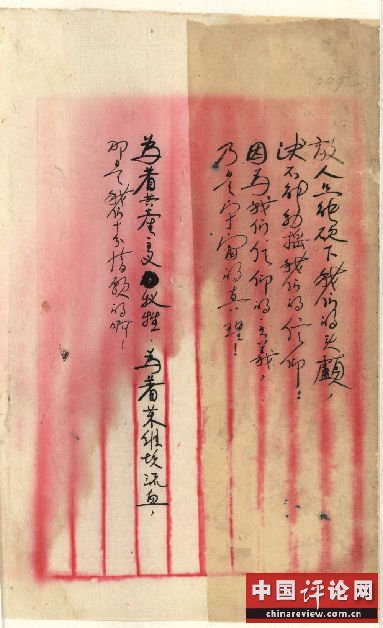 敌人只能砍下我们的头顱，
决不能动摇我们的信仰！
因為我们信仰的主義，
乃是宇宙的真理！
為着共產主义牺牲，為着苏維埃流血，
那是我们十分情願的啊！
中国评论网
chinareview.com